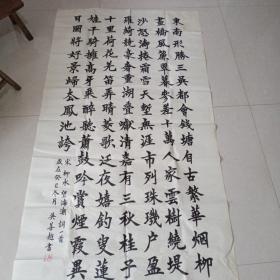 東南形勝三吳都會錢塘自古繁華烟柳
畫橋風簾翠幕參差十萬人家雲樹繞堤
沙怒濤捲霜雪天塹無涯市列珠璣戶盈
羅綺競豪奢重湖疊巘清嘉有三秋桂子
十里荷花羌笛弄晴菱歌泛夜嬉釣叟蓮
娃千騎擁高牙乘醉聽簫鼓吟賞煙霞異
日圖將好景歸去鳳池誇
宋柳永望海潮詞一首
歲在癸巳冬月 吳書